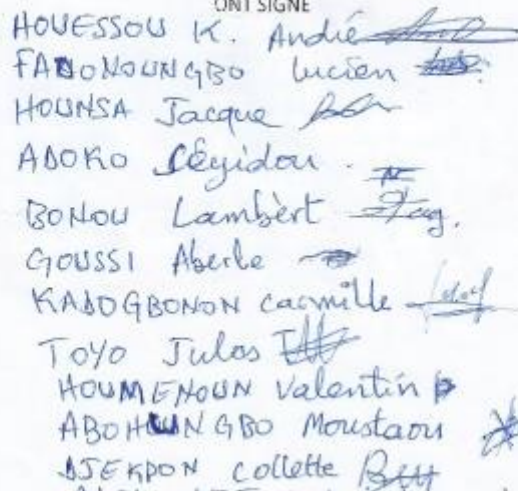 ONT SIGNE
HOUESSOU K. André
FADONOUNGBO Lucien
HOUNSA Jacque
ADOKO Séyidou.
BONOU Lambèrt
GOUSSI Aberle
KADOGBONON Cacmille
TOYO Julos
HOUMENOUN Valentin
ABOHOUNGBO Moustaou
DJEKPON Collette